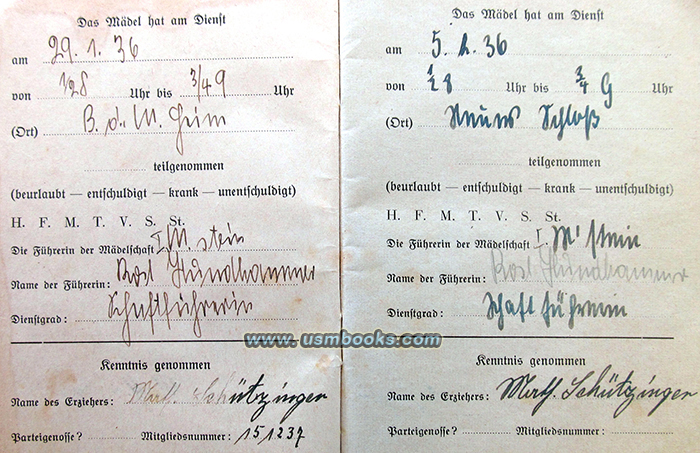 Das Mädel hat am Dienst
am 29. 1. 36
von ½8 Uhr bis ¾9 Uhr
(Ort) B. d. M. Heim
teilgenommen
(beurlaubt — entschuldigt — krank — unentschuldigt)
H. F. M. T. V. S. St.
Die Führerin der Mädelschaft I M. stein
Name der Führerin: Rosl Hundhammer
Dienstgrad: Schaftführerin
Kenntnis genommen
Name des Erziehers: Math. Schützinger
Parteigenosse? Mitgliedsnummer: 151237
Das Mädel hat am Dienst
am 5. 2. 36
von ½8 Uhr bis ¾ 9 Uhr
(Ort) Neues Schloß
teilgenommen
(beurlaubt — entschuldigt — krank — unentschuldigt)
H. F. M. T. V. S. St.
Die Führerin der Mädelschaft I. M' stein
Name der Führerin: Rosl Hundhammer
Dienstgrad: Schaftführerin
Kenntnis genommen
Name des Erziehers: Math. Schützinger
Parteigenosse? Mitgliedsnummer:
www.usmbooks.com